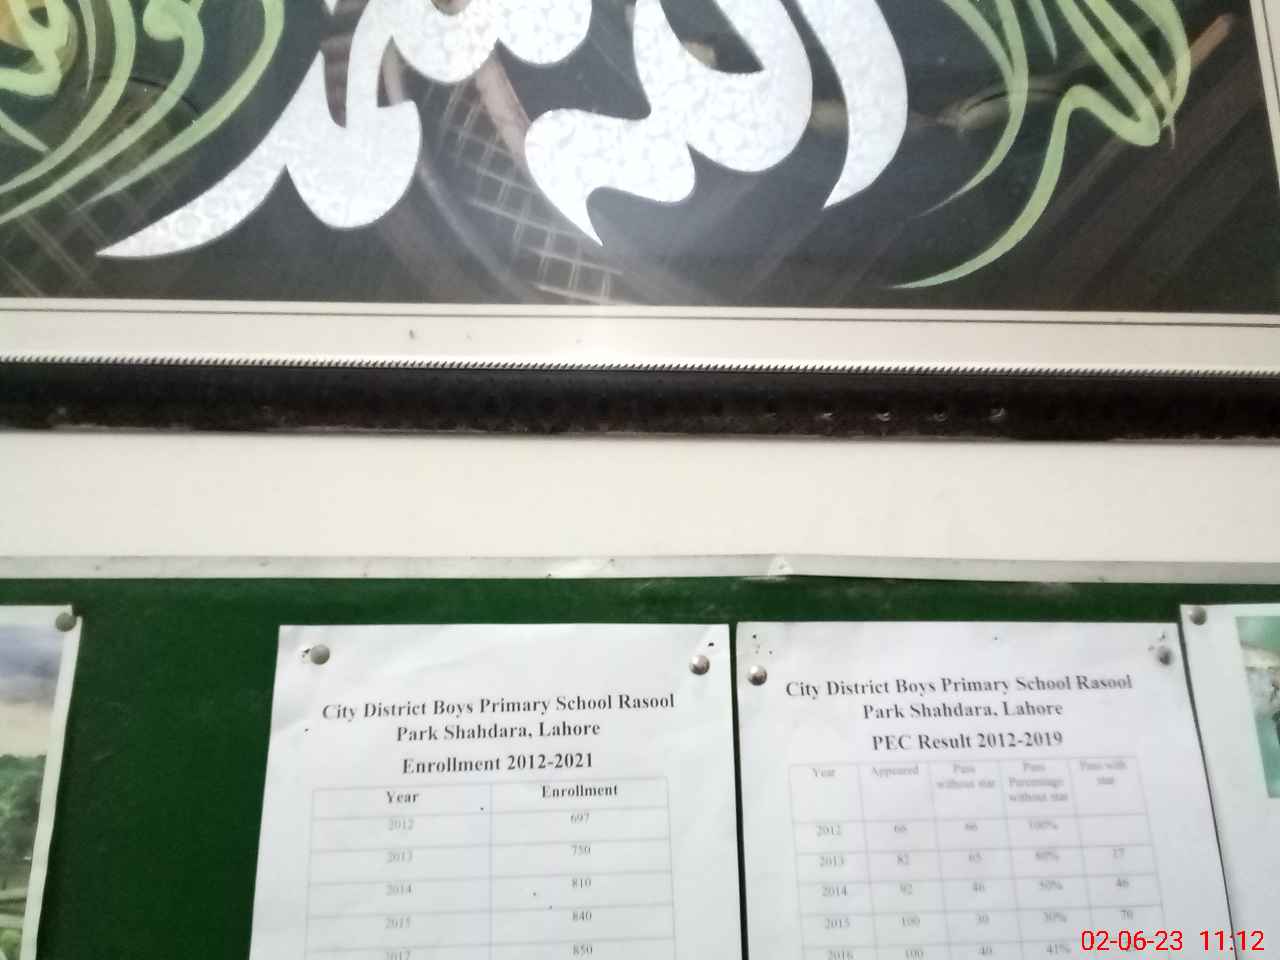 City District Boys Primary School Rasool
Park Shahdara, Lahore
Enrollment 2012-2021
Year Enrollment
2012 697
2013 750
2014 810
2015 840
2017 850
City District Boys Primary School Rasool
Park Shahdara, Lahore
PEC Result 2012-2019
Year Appeared Pass without star Pass Percentage without star Pass with star
2012 66 66 100%
2013 82 65 80% 17
2014 92 46 50% 46
2015 100 30 30% 70
2016 100 40 41%
02-06-23 11:12